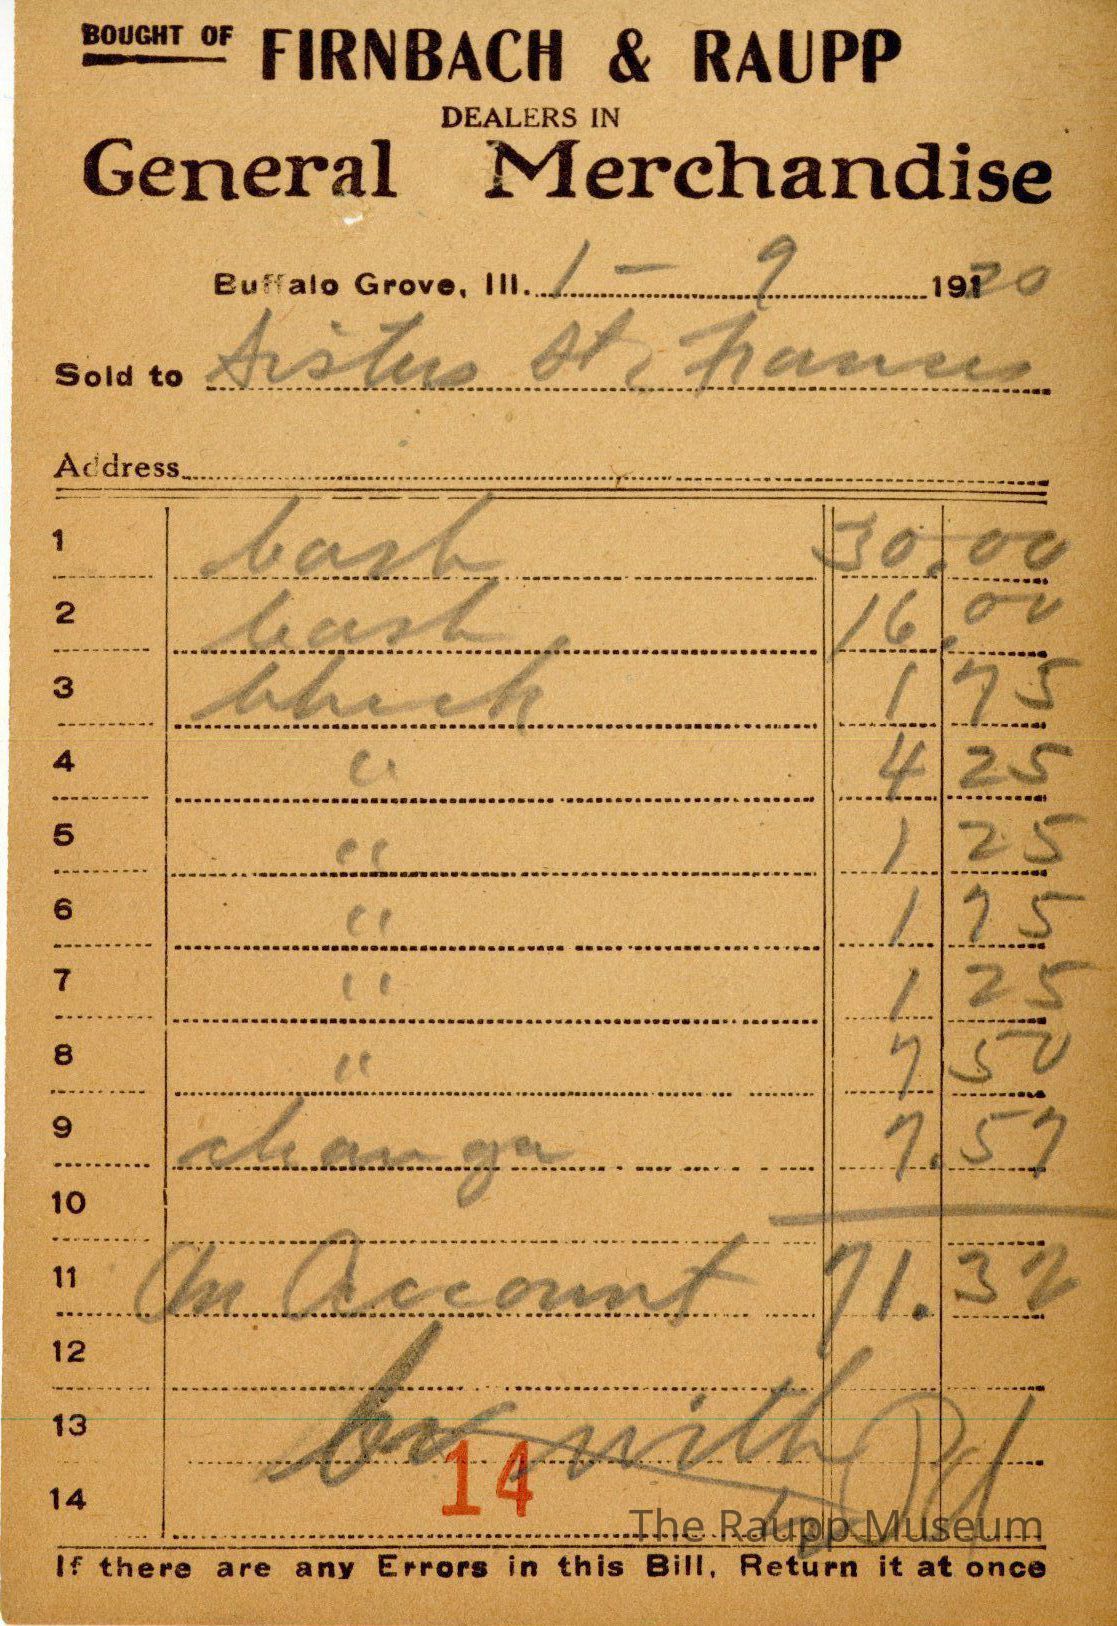 BOUGHT OF FIRNBACH & RAUPP
DEALERS IN
General Merchandise
Buffalo Grove, Ill. 1 - 9 1920
Sold to Sisters St. Francis
Address
1 Cash 30.00
2 Cash 16.00
3 Check 1 75
4 " 4 25
5 " 1 25
6 " 1 75
7 " 1 25
8 " 7 50
9 change 7.57
10
11 On Account 71.32
12
13 with Pd
14
14
The Raupp Museum
If there are any Errors in this Bill, Return it at once